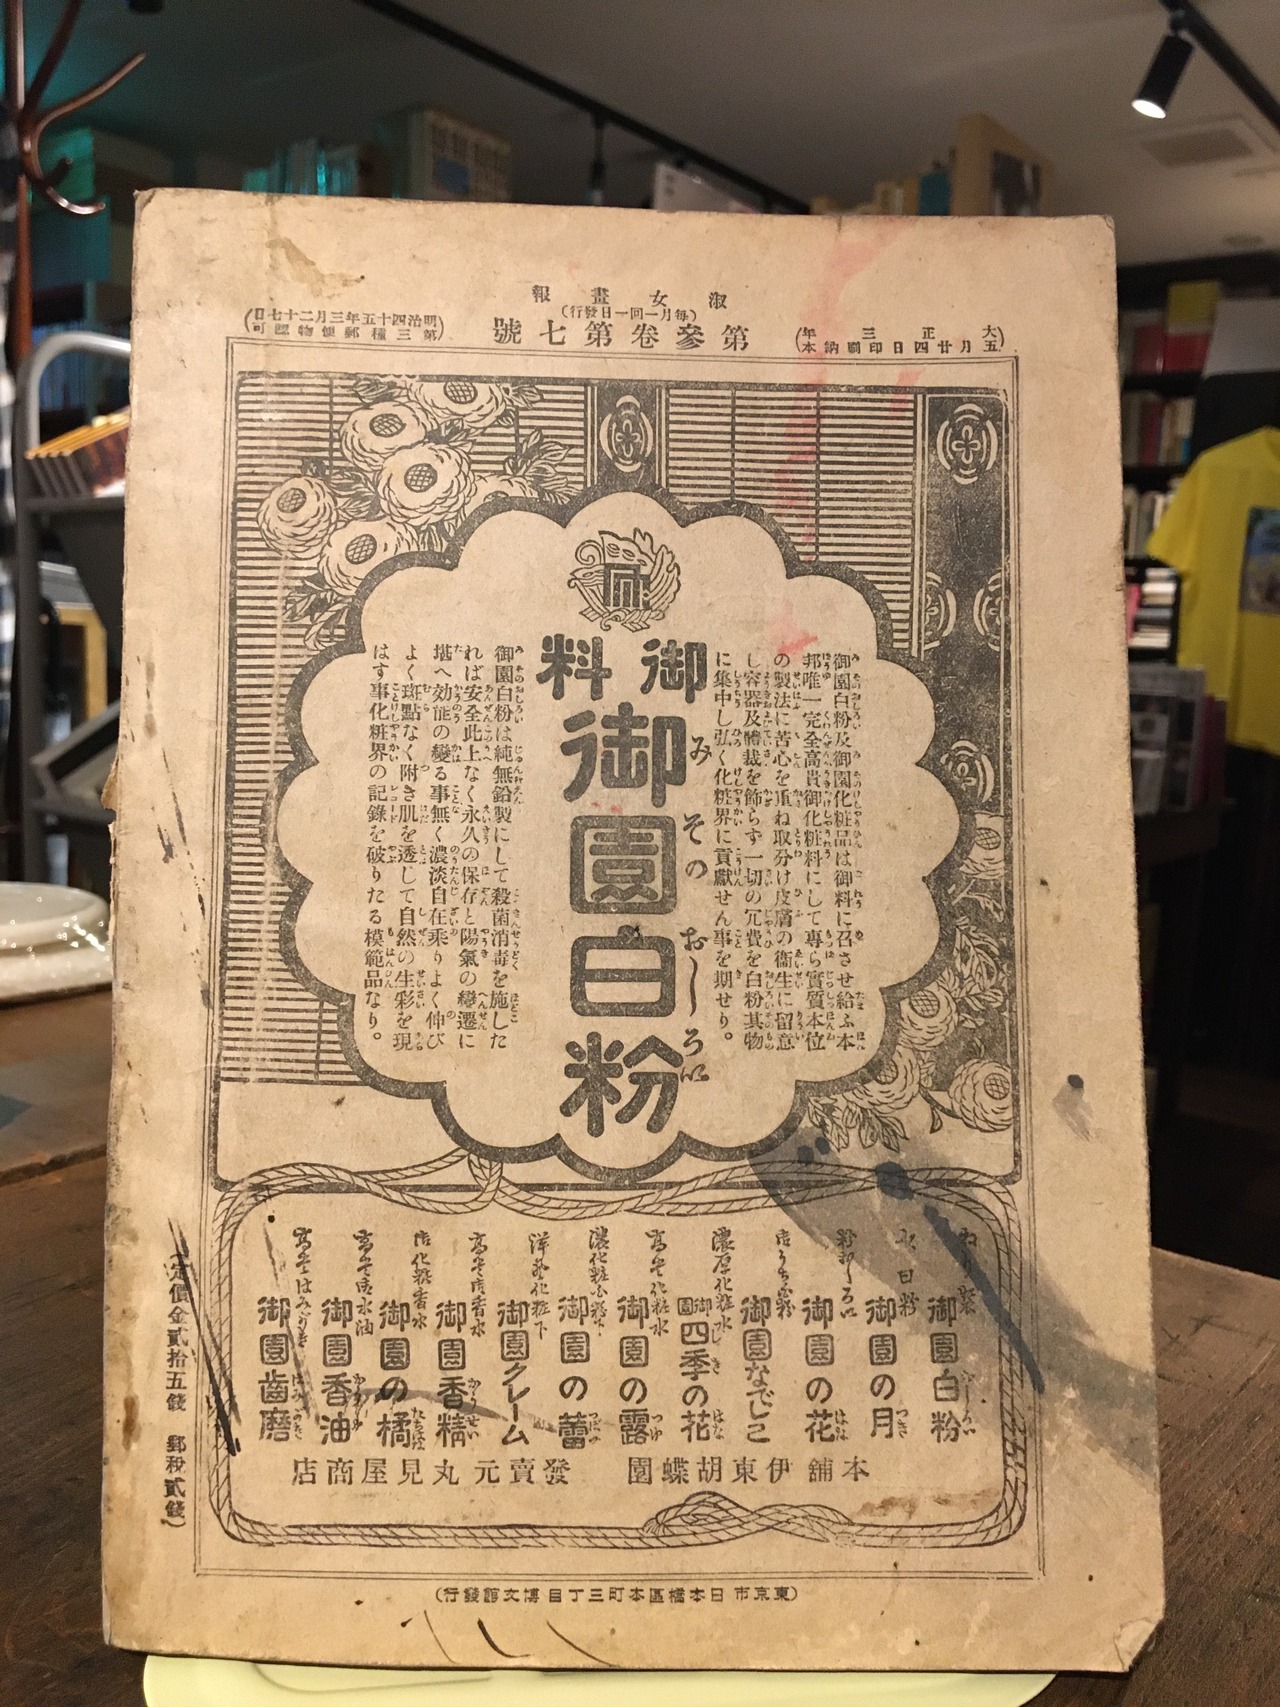 淑女畫報
(每月一回一日發行)
第參卷第七號
大正三年
五月廿四日印刷納本
明治四十五年三月二十七日
第三種郵便物認可
御園白粉及御園化粧品は御料に召させ給ふ本
邦唯一完全高貴御化粧料にして專ら實質本位
の製法に苦心を重ね取分け皮膚の衞生に留意
し容器及體裁を飾らず一切の冗費を白粉其物
に集中し弘く化粧界に貢獻せん事を期せり。
御料
御園白粉
みそのおしろい
御園白粉は純無鉛製にして殺菌消毒を施した
れば安全此上なく永久の保存と陽氣の變遷に
堪へ効能の變る事無く濃淡自在乘りよく伸び
よく斑點なく附き肌を透して自然の生彩を現
はす事化粧界の記錄を破りたる模範品なり。
御園白粉
御園の月
御園の花
御園なでしこ
濃厚化粧水
御園四季の花
高等化粧水
御園の露
御園の蕾
洋發化粧下
御園クレーム
御園香精
化粧香水
御園の橘
御園香油
御園齒磨
本舖伊東胡蝶園
發賣元丸見屋商店
(定價金貳拾五錢 郵稅貳錢)
(東京市日本橋區本町三丁目博文館發行)